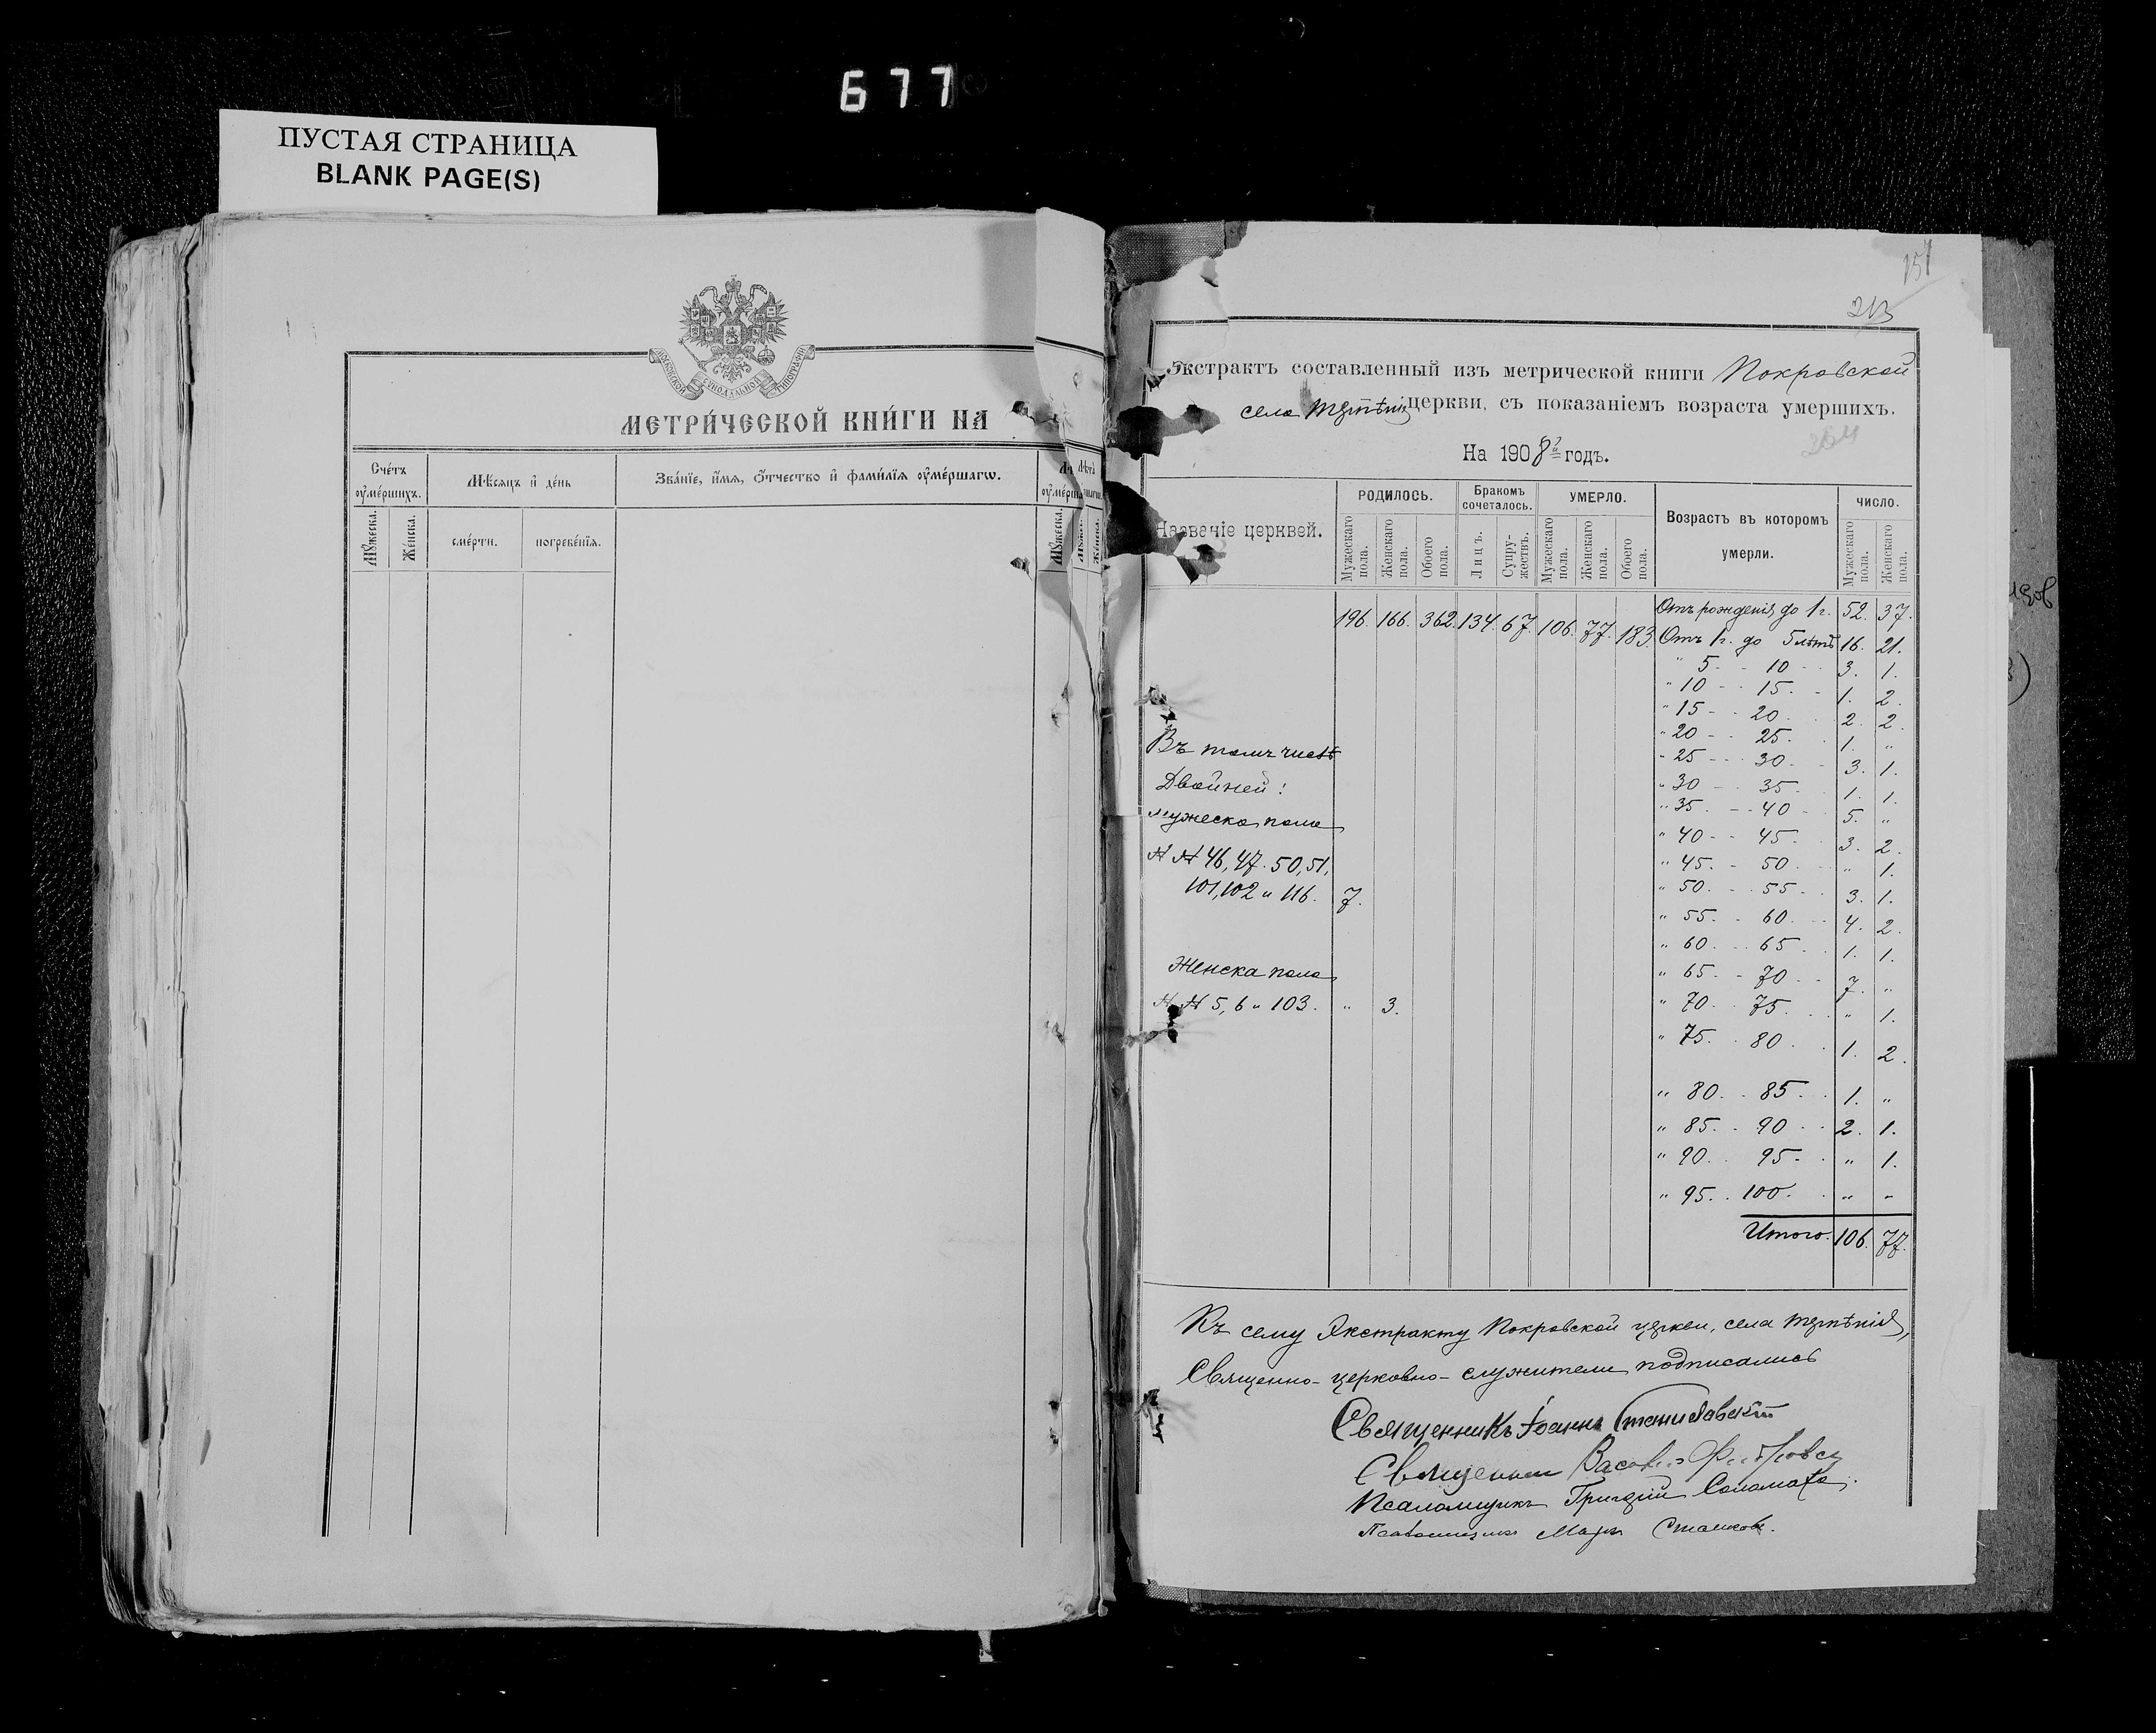 677
ПУСТАЯ СТРАНИЦА
BLANK PAGE(S)
МОСКОВСКОЙ СѴНОДАЛЬНОЙ ТИПОГРАФІИ
МЕТРИ́ЧЕСКОЙ КНИ́ГИ НА
Сче́тъ оу҆ме́ршихъ.
Мѣ́сяцъ и҆ де́нь
Зва́нїе, и҆́мѧ, ѻ҆́тчество и҆ фами́лїѧ оу҆ме́ршагѡ.
Лѣта
Мꙋ́жеска.
Же́нска.
сме́рти.
погребе́нїѧ.
Мꙋ́жеска.
Же́нска.
151
213
264
Экстрактъ составленный изъ метрической книги Покровской
села Терпѣнія церкви, съ показаніемъ возраста умершихъ.
На 1908й годъ.
Названіе церквей.
РОДИЛОСЬ.
Бракомъ сочеталось.
УМЕРЛО.
Возрастъ въ которомъ умерли.
ЧИСЛО.
Мужескаго пола.
Женскаго пола.
Обоего пола.
Лицъ.
Супружествъ.
Мужескаго пола.
Женскаго пола.
Обоего пола.
Мужескаго пола.
Женскаго пола.
196. 166. 362. 134. 67. 106. 77. 183.
Отъ рожденія до 1 г. 52. 37.
Отъ 1 г. до 5 лѣтъ 16. 21.
" 5 - - 10 - - 3. 1.
" 10 - - 15. - 1. 2.
" 15 - - 20 2. 2.
" 20 - - 25. 1. "
" 25 - - 30 - 3. 1.
" 30 - - 35. 1. 1.
" 35. - - 40 - 5. "
" 40 - - 45. 3. 2.
" 45. - 50 " 1.
" 50. - - 55 - 3. 1.
" 55. - 60. - 4. 2.
" 60. - - 65 - 1. 1.
" 65. - 70 - - 7. "
" 70. - 75. " 1.
" 75. - 80. 1. 2.
" 80. - 85. - 1. "
" 85. - 90 - - 2. 1.
" 90. 95. " 1.
" 95. - 100. " "
Итого. 106. 77.
Въ томъ числѣ
Двойней:
мужеска пола
№№ 46, 47. 50, 51,
101, 102 и 116. 7.
Женска пола
№№ 5, 6 и 103. " 3.
Къ сему Экстракту Покровской церкви, села Терпѣнія,
Священно-церковно-служители подписались
Священникъ Іоаннъ Станиславскій
Священникъ
Псаломщикъ Григорій Соломаха.
Псаломщикъ Маркъ